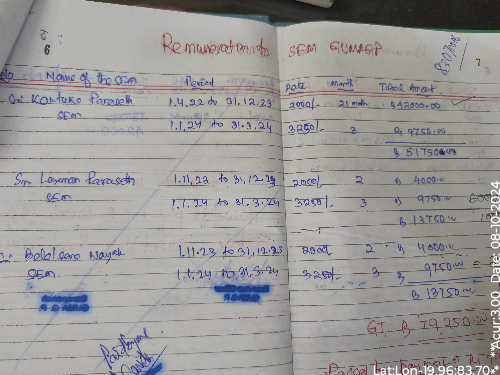 6
Remuneration to SEM GUMAGP
7
No Name of the SEM Period Rate Month Total Amount
Sri Kautuko Paraseth 1.4.22 to 31.12.23 2000/- 21 month ₹ 42000.00
SEM 1.1.24 to 31.3.24 3250/- 3 ₹ 9750.00
₹ 51750.00
Sri Laxman Paraseth 1.11.23 to 31.12.23 2000/- 2 ₹ 4000.00
SEM 1.1.24 to 31.3.24 3250/- 3 ₹ 9750
₹ 13750
Nayak 1.11.23 to 31.12.23 2000/- 2 ₹ 4000.00
SEM 1.1.24 to 31.3.24 3250/- 3 ₹ 9750.00
₹ 13750.00
GT ₹ 79,250.00
Lat:Lon-19.96:83.70*
**Acur:3.00, Date: 08-12-2024